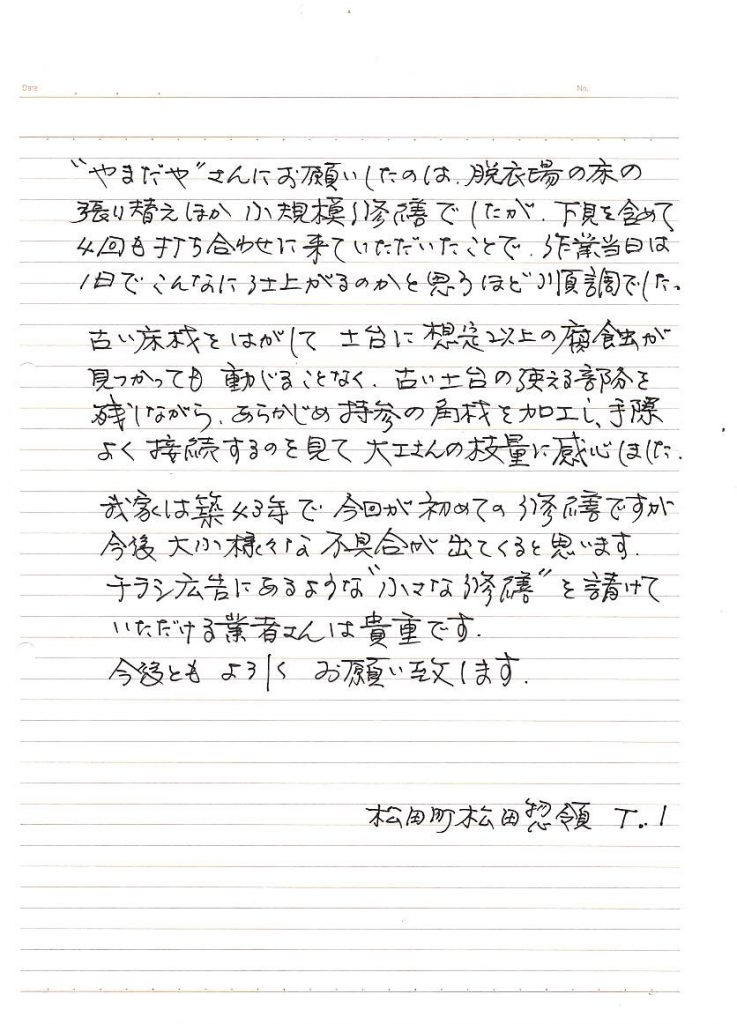 Date
No.
“やまだや”さんにお願いしたのは、脱衣場の床の
張り替えほか小規模修繕でしたが、下見を含めて
4回も打ち合わせに来ていただいたことで、作業当日は
1日でこんなに仕上がるのかと思うほど順調でした。
古い床材をはがして土台に想定以上の腐食虫が
見つかっても動じることなく、古い土台の使える部分を
残しながら、あらかじめ持参の角材を加工し、手際
よく接続するのを見て大工さんの技量に感心しました.
我家は築43年で今回が初めての修繕ですが
今後大小様々な不具合が出てくると思います.
チラシ広告にあるような“小さな修繕”を請けて
いただける業者さんは貴重です.
今後ともよろしくお願い致します.
松田町松田惣領 T.I